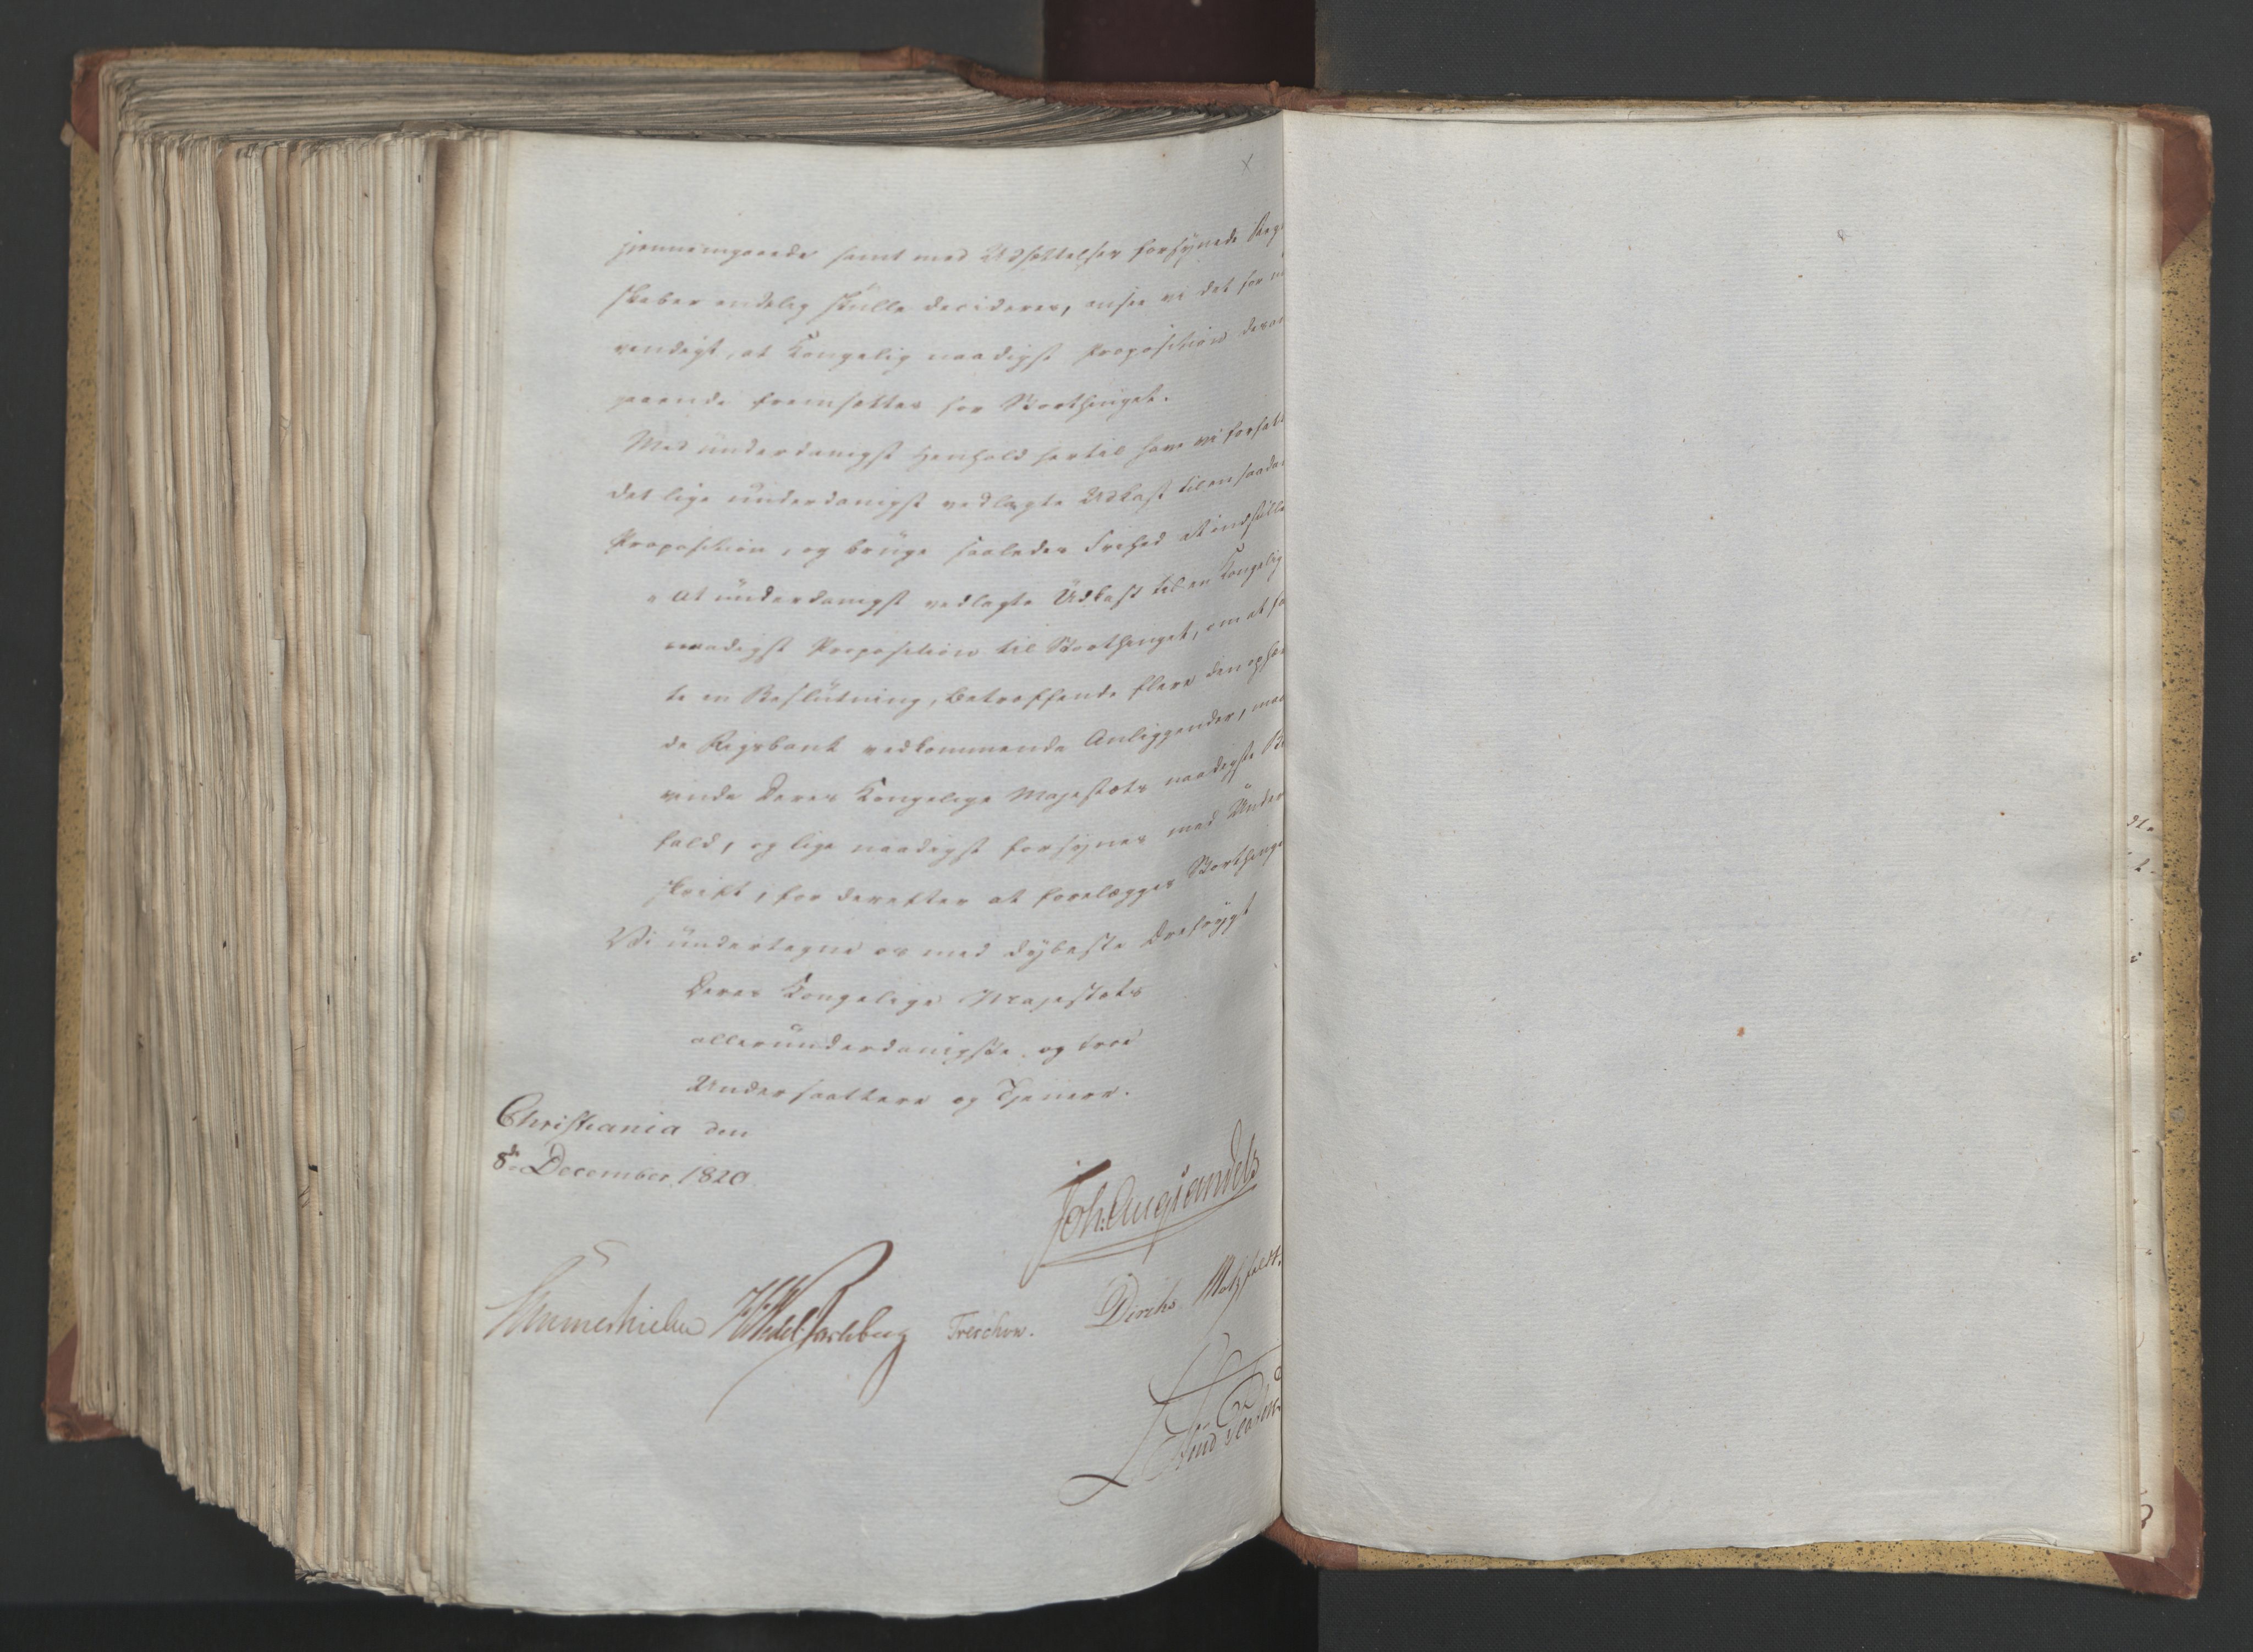 gjennemgaaede samt med Udsættelser forsynede Reg
skaber endelig skulle decideres, ansee vi det for n
vendigt, at Kongelig naadigst Proposition desan
gaaende fremsættes for Storthinget.
Med underdanigst Henhold hertil have vi forfatt
det lige underdanigst vedlagte Udkast til en saada
Proposition, og bruge saaledes Frihed at indstille
" At underdanigst vedlagte Udkast til en Kongelig
naadigst Proposition til Storthinget, om at fa
te en Beslutning, betreffende flere den ophæ
de Rigsbank vedkommende Anliggender, maa
vinde Deres Kongelige Majestæts naadigste Bi
fald, og lige naadigst forsynes med Under
skrift, for derefter at forelægges Storthinge
Vi undertegne os med dybeste Ærefrygt
Deres Kongelige Majestæts
allerunderdanigste og troe
Undersaattere og Tjenere.
Christiania den
8de December 1820
Joh: Aug Sandels
Sommerhielm HWedel Jarlsberg Treschow. Diriks Motzfeldt.